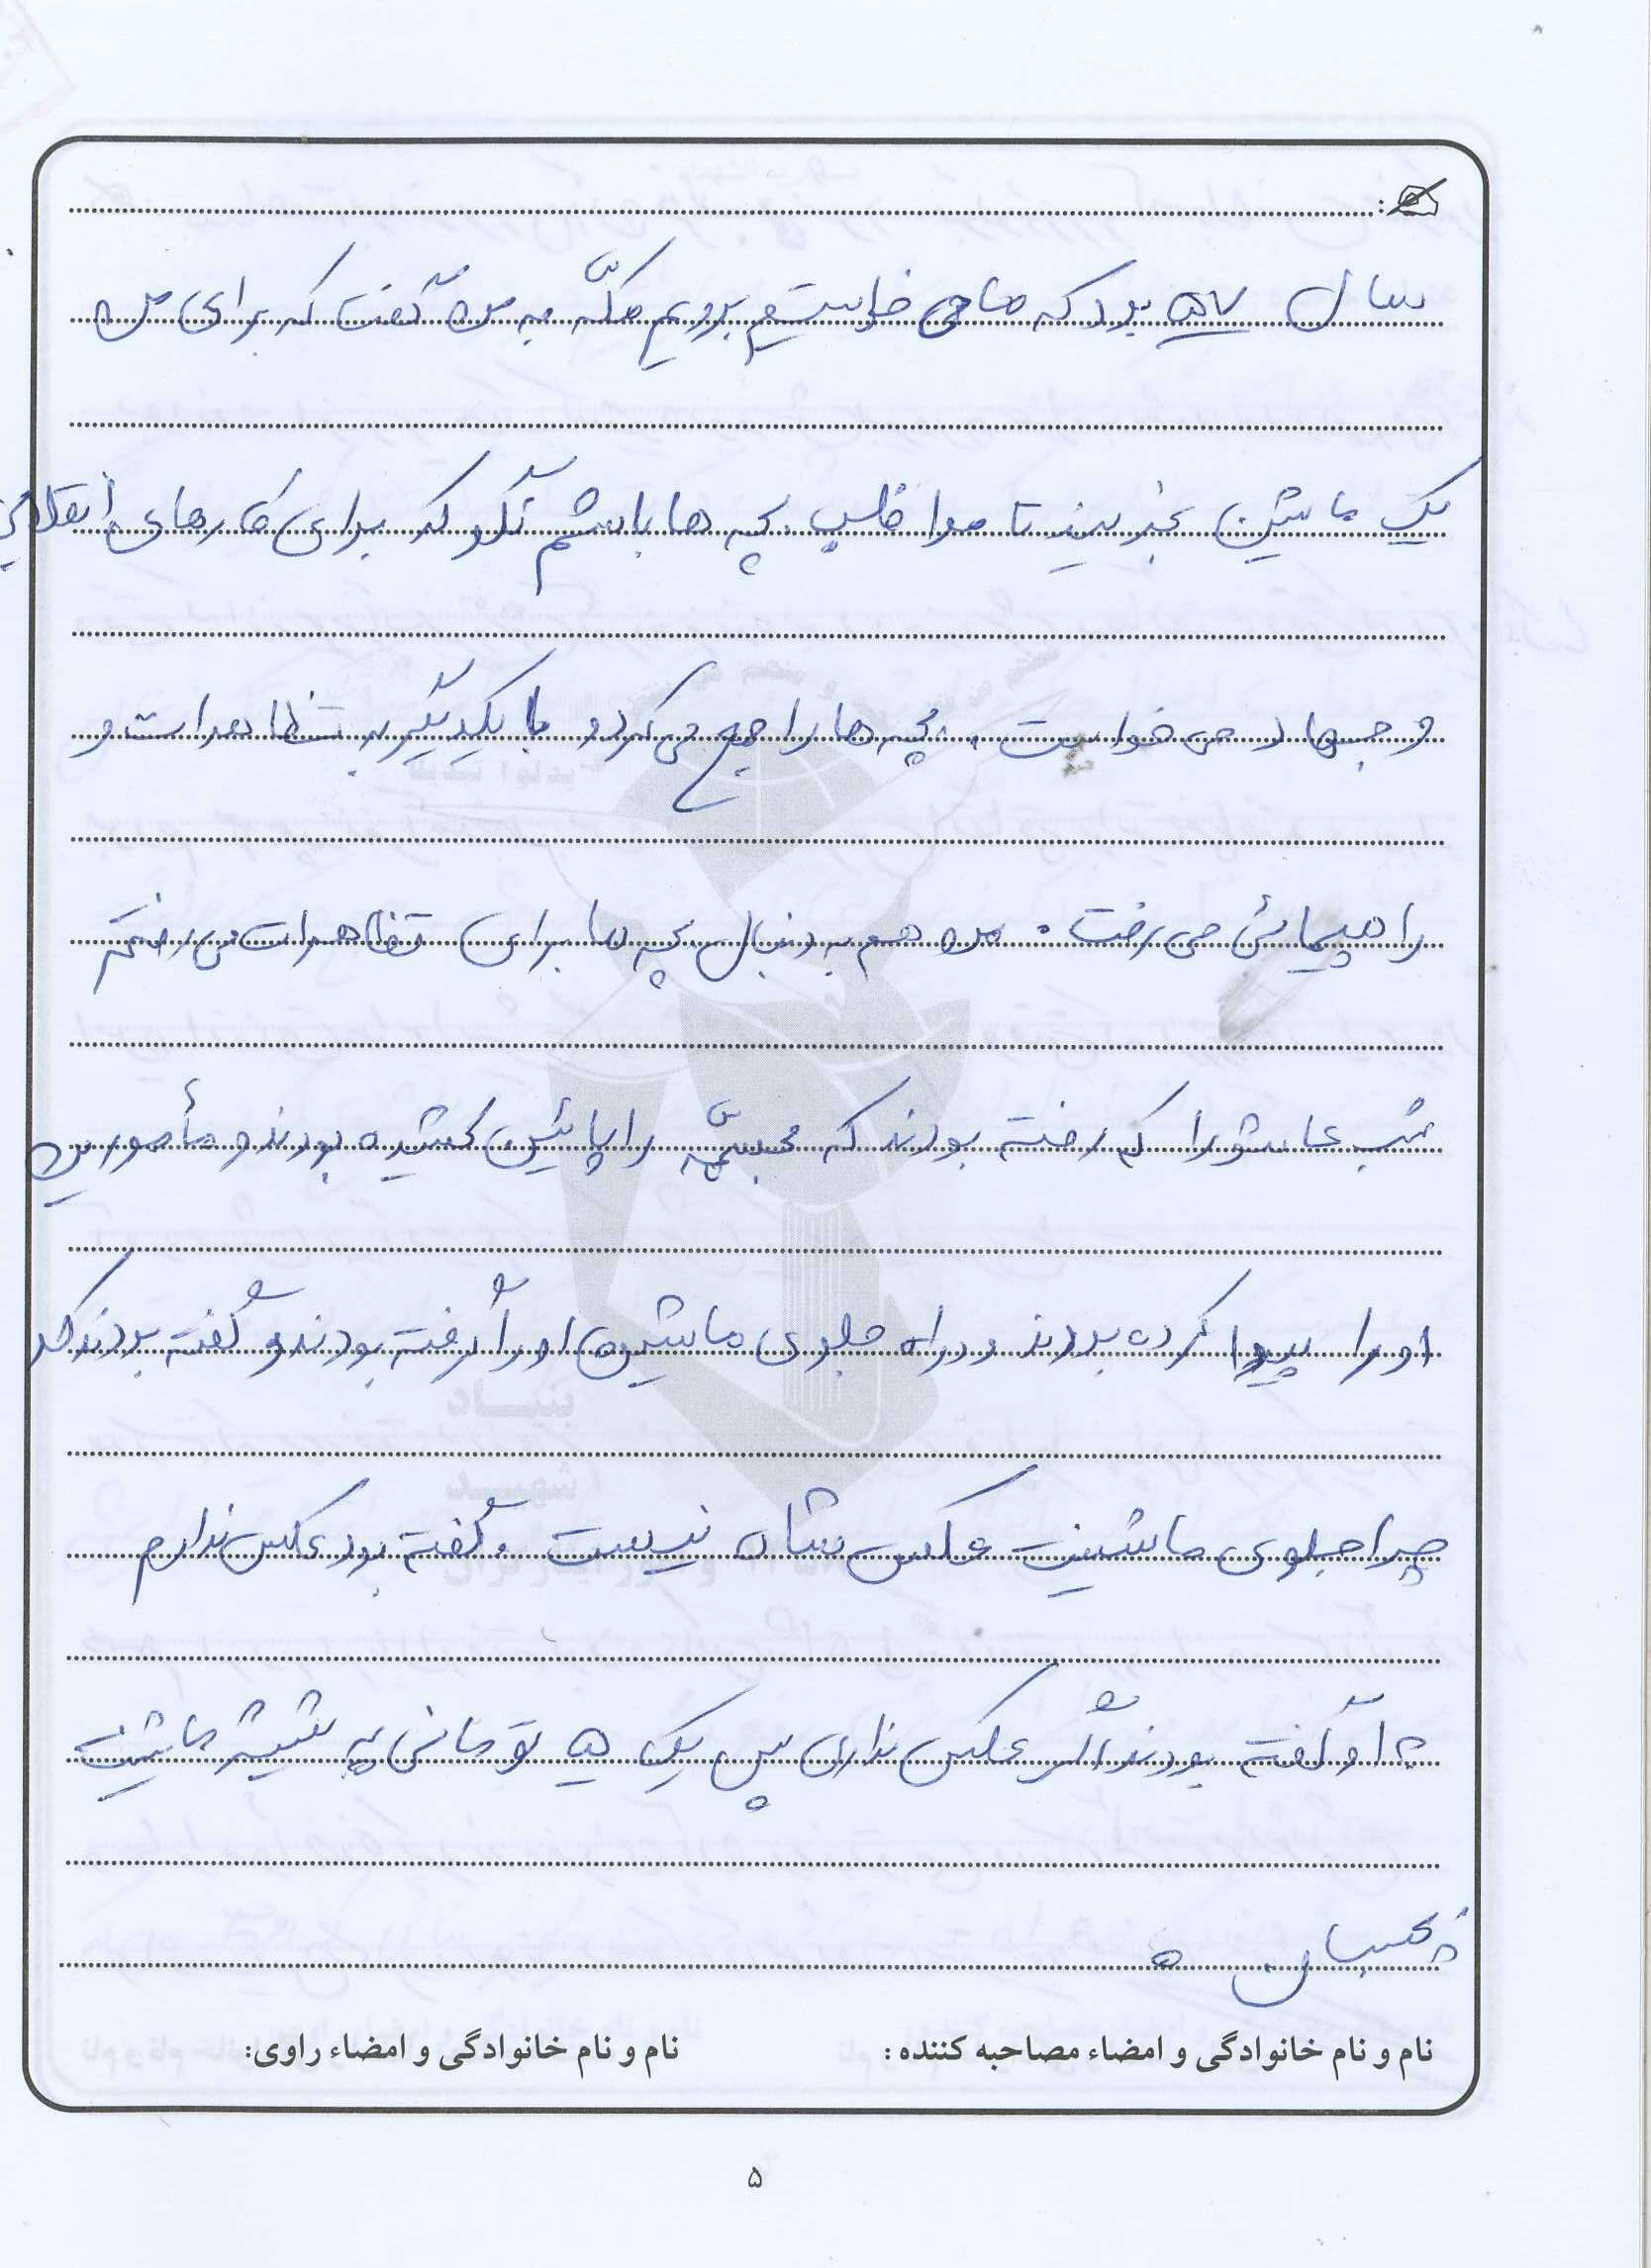 سال ۵۷ بود که ما می خواستیم برویم مکّه به من گفت که برای من
یک ماشین بخرید تا مواظب بچه ها باشم نگو که برای کارهای انقلابی
و جهاد می خواست. بچه ها را جمع می کرد و با یکدیگر به تظاهرات و
راهپیمائی می رفت. من هم به دنبال بچه ها برای تظاهرات می رفتم
شب عاشورا که رفته بودند که مجسمّه را پائین کشیده بودند و مأمورین
او را پیدا کرده بودند و در راه جلوی ماشین او را گرفته بودند و گفته بودند که
چرا جلوی ماشینت عکس شاه نیست و گفته بود عکس ندارم
به او گفته بودند اگر عکس نداری پس یک ۵ تومانی به شیشه ماشینت
بچسبان.
نام و نام خانوادگی و امضاء مصاحبه کننده: نام و نام خانوادگی و امضاء راوی:
۵